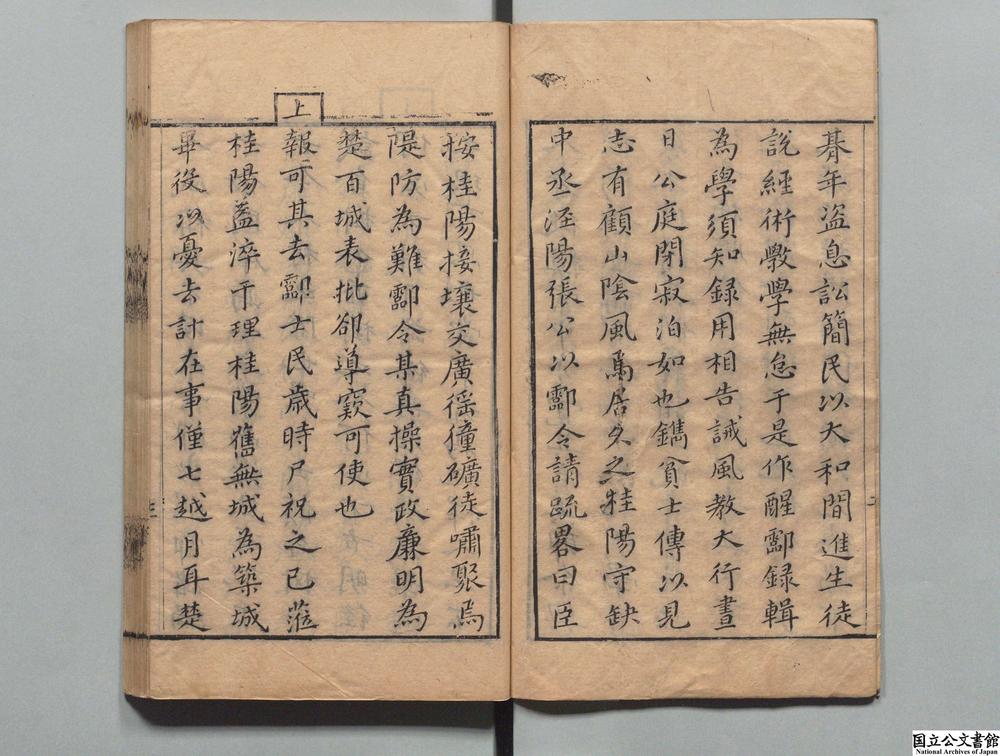 朞年盗息訟簡民以大和間進生徒
說經術斅學無怠于是作醒酃録輯
為學須知録用相告誡風教大行晝
日公庭閉寂泊如也鐫貧士傳以見
志有顧山陰風焉居久之桂陽守缺
中丞涇陽張公以酃令請疏畧曰臣
二
按桂陽接壤交廣徭獞礦徒嘯聚為
隄防為難酃令某真操實政廉明為
楚百城表批卻導窾可使也
上
報可其去酃士民歲時尸祝之已蒞
桂陽蓋淬于理桂陽舊無城為築城
畢役以憂去計在事僅七越月耳楚
三
国立公文書館
National Archives of Japan